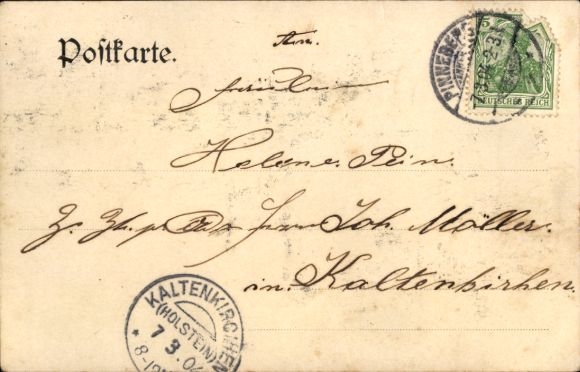 Postkarte.
An.
Fräulein
Helene Pein.
z. Zt. Joh. Möller.
in Kaltenkirchen.
PINNEBERG
5
DEUTSCHES REICH
KALTENKIRCHEN
(HOLSTEIN)
7 3. 04
* 8-